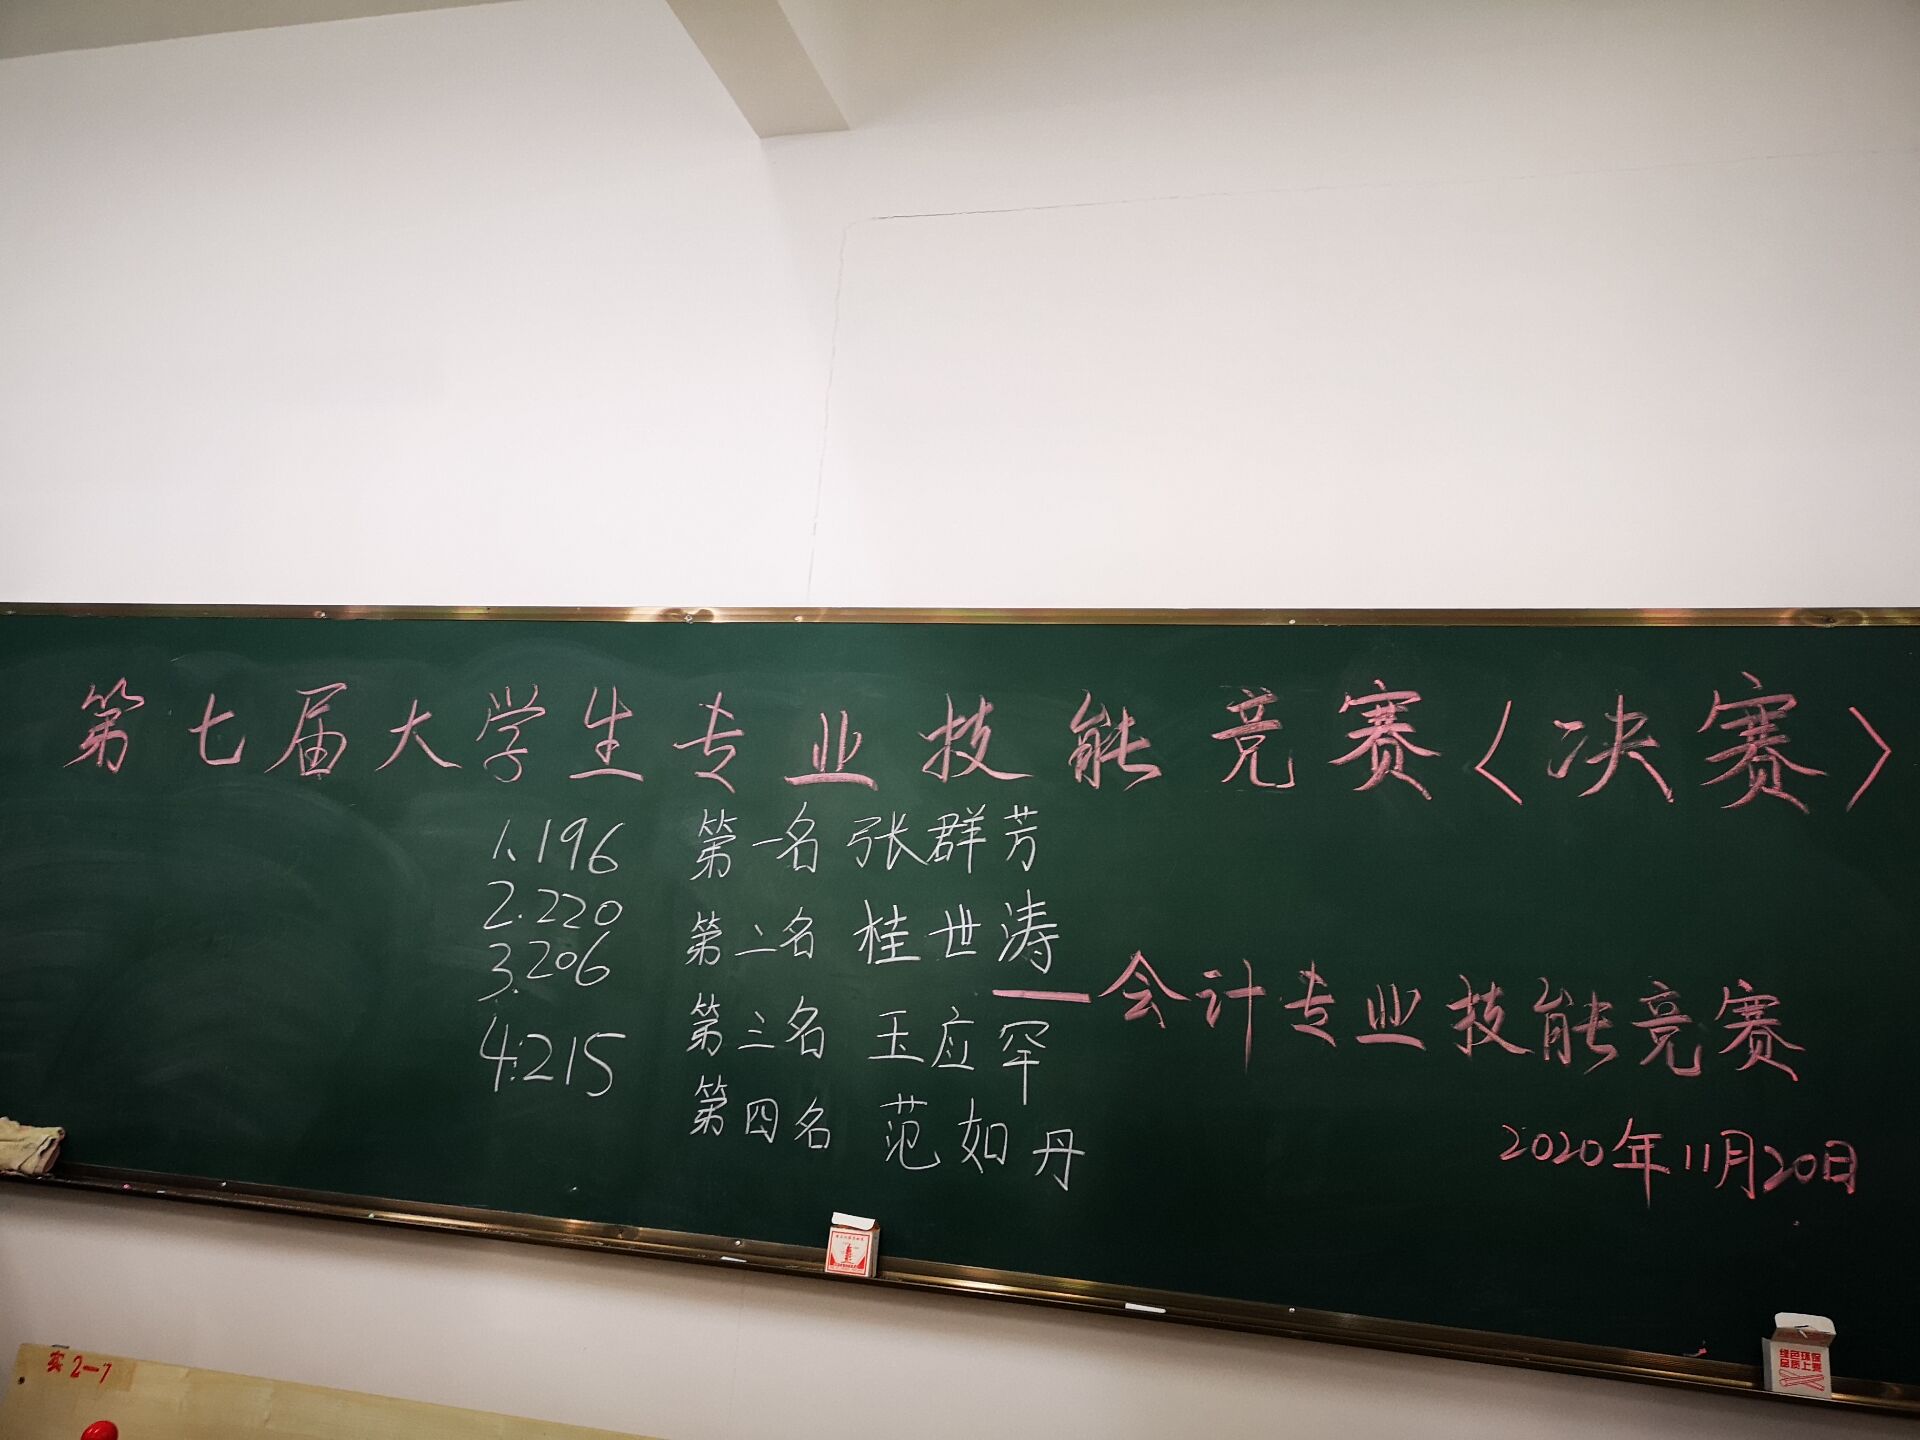 第七届大学生专业技能竞赛〈决赛〉
1.196 第一名 张群芳
2.220 第二名 桂世涛
3.206 第三名 玉应罕
4.215 第四名 范如丹
—会计专业技能竞赛
2020年11月20日
绿色环保
品质上乘
实2-7